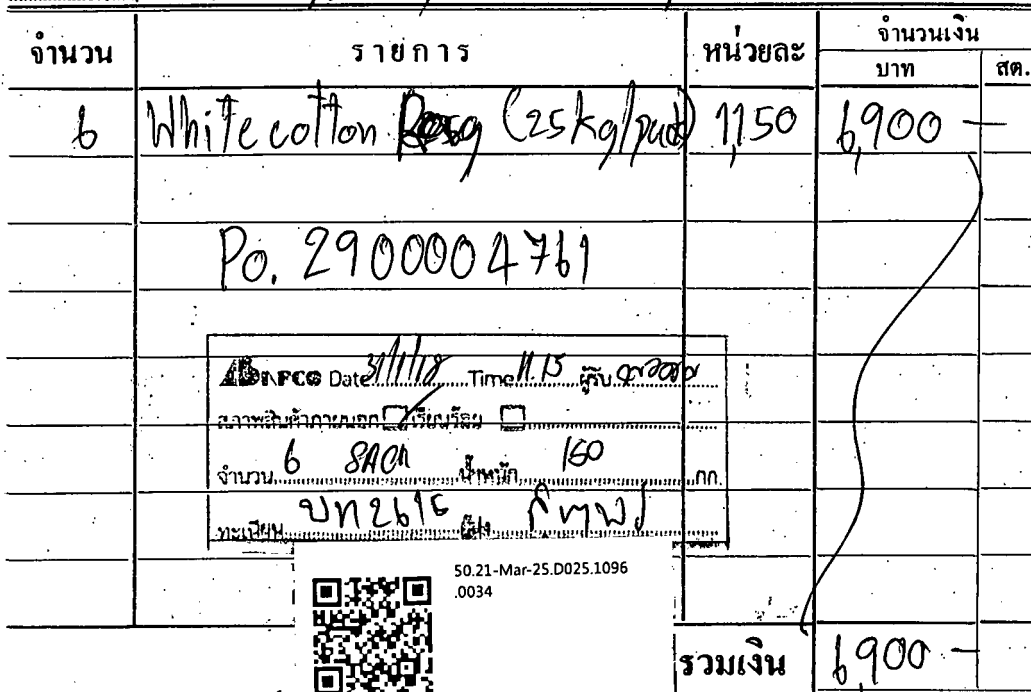 จำนวน รายการ หน่วยละ จำนวนเงิน
บาท สต.
6 White cotton (25kg/ 1,150 6,900 —
Po. 2900004761
Date 31/1/18 Time 11.15 ผู้รับ
สภาพสินค้าภายนอก เรียบร้อย
จำนวน 6 SACK น้ำหนัก 150 กก.
ทะเบียน บท 2615 ผู้ส่ง
50.21-Mar-25.D025.1096
.0034
รวมเงิน 6,900 —